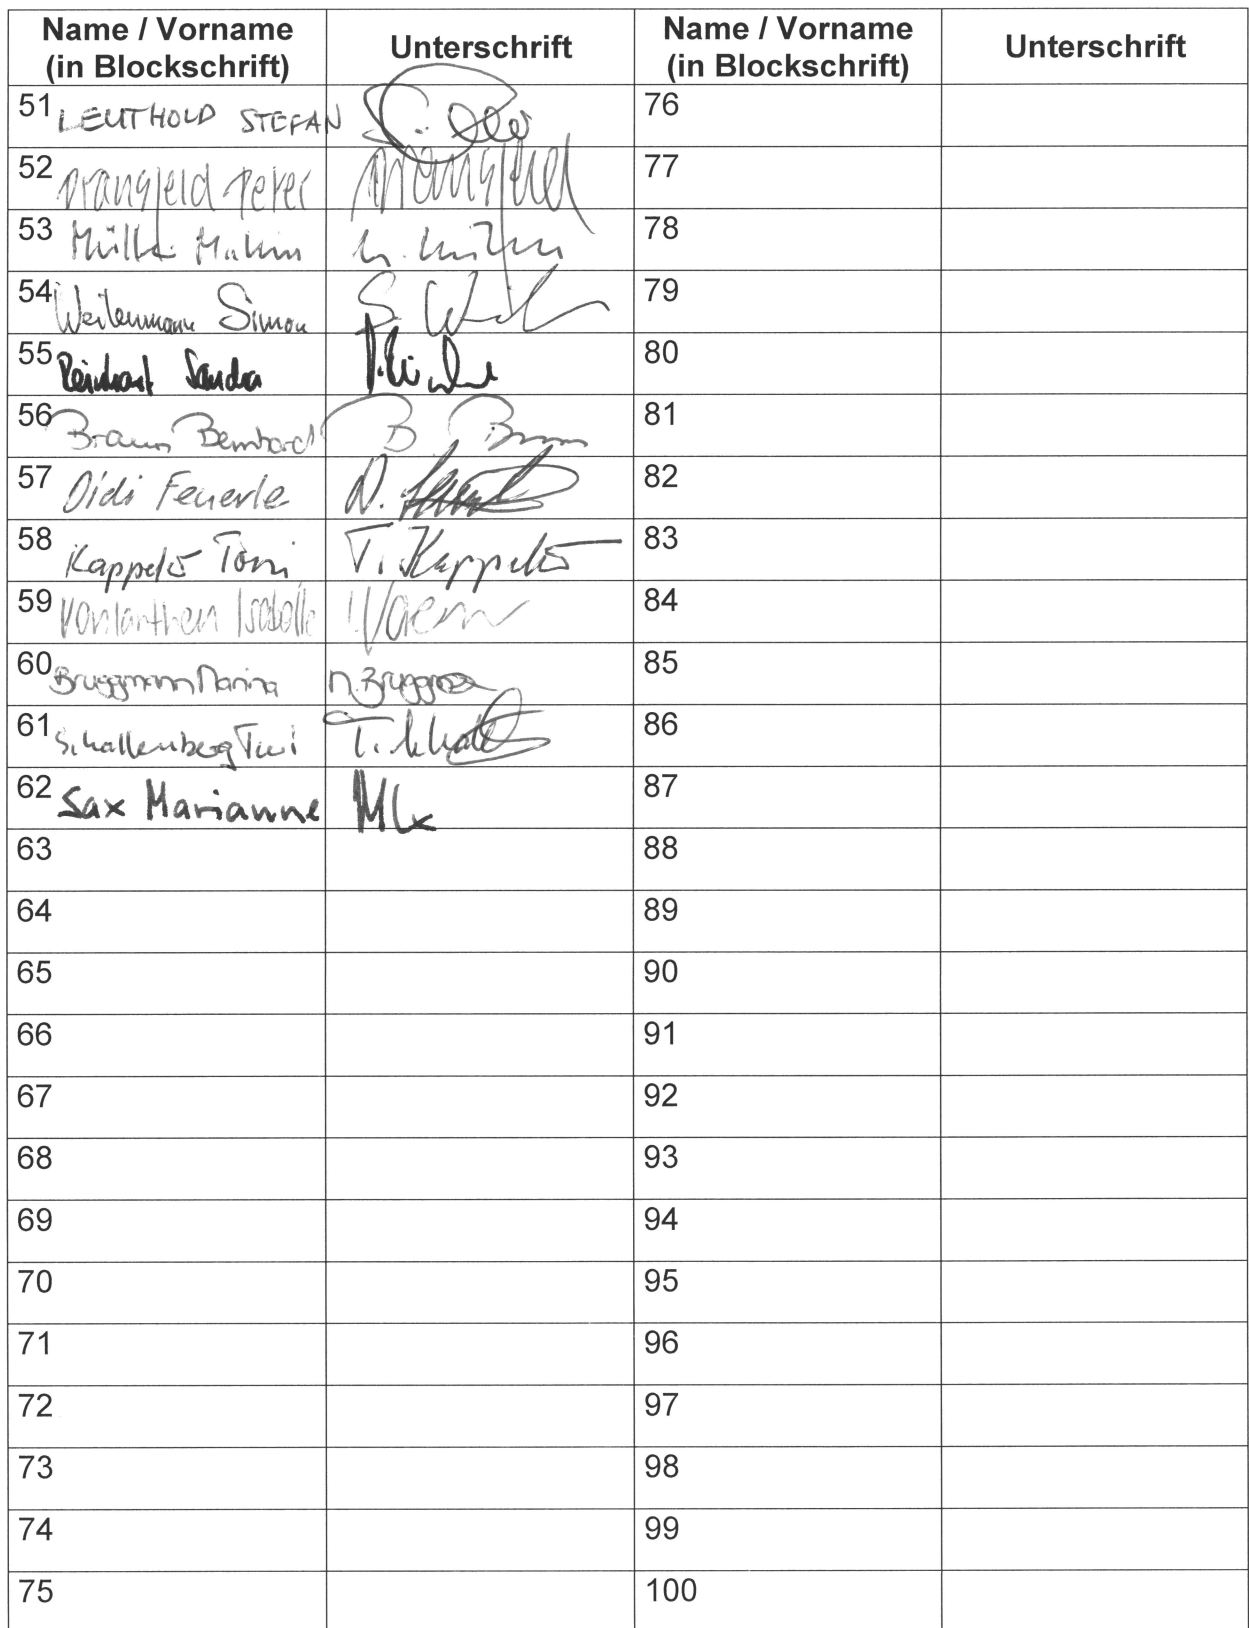 Name / Vorname
(in Blockschrift)
Unterschrift
Name / Vorname
(in Blockschrift)
Unterschrift
51 LEUTHOLD STEFAN
76
52 Peter
77
53 Müller
78
54 Weilenmann Simon S.
79
55 Reinhart Sandra
80
56 Braun Bernhard B. Braun
81
57 Didi Feuerle D.
82
58 Kappeler Toni T. Kappeler
83
59 Vonlanthen Isabelle
84
60 Bruggmann Marina
85
61 Schallenberg Turi T.
86
62 Sax Marianne
87
63
88
64
89
65
90
66
91
67
92
68
93
69
94
70
95
71
96
72
97
73
98
74
99
75
100